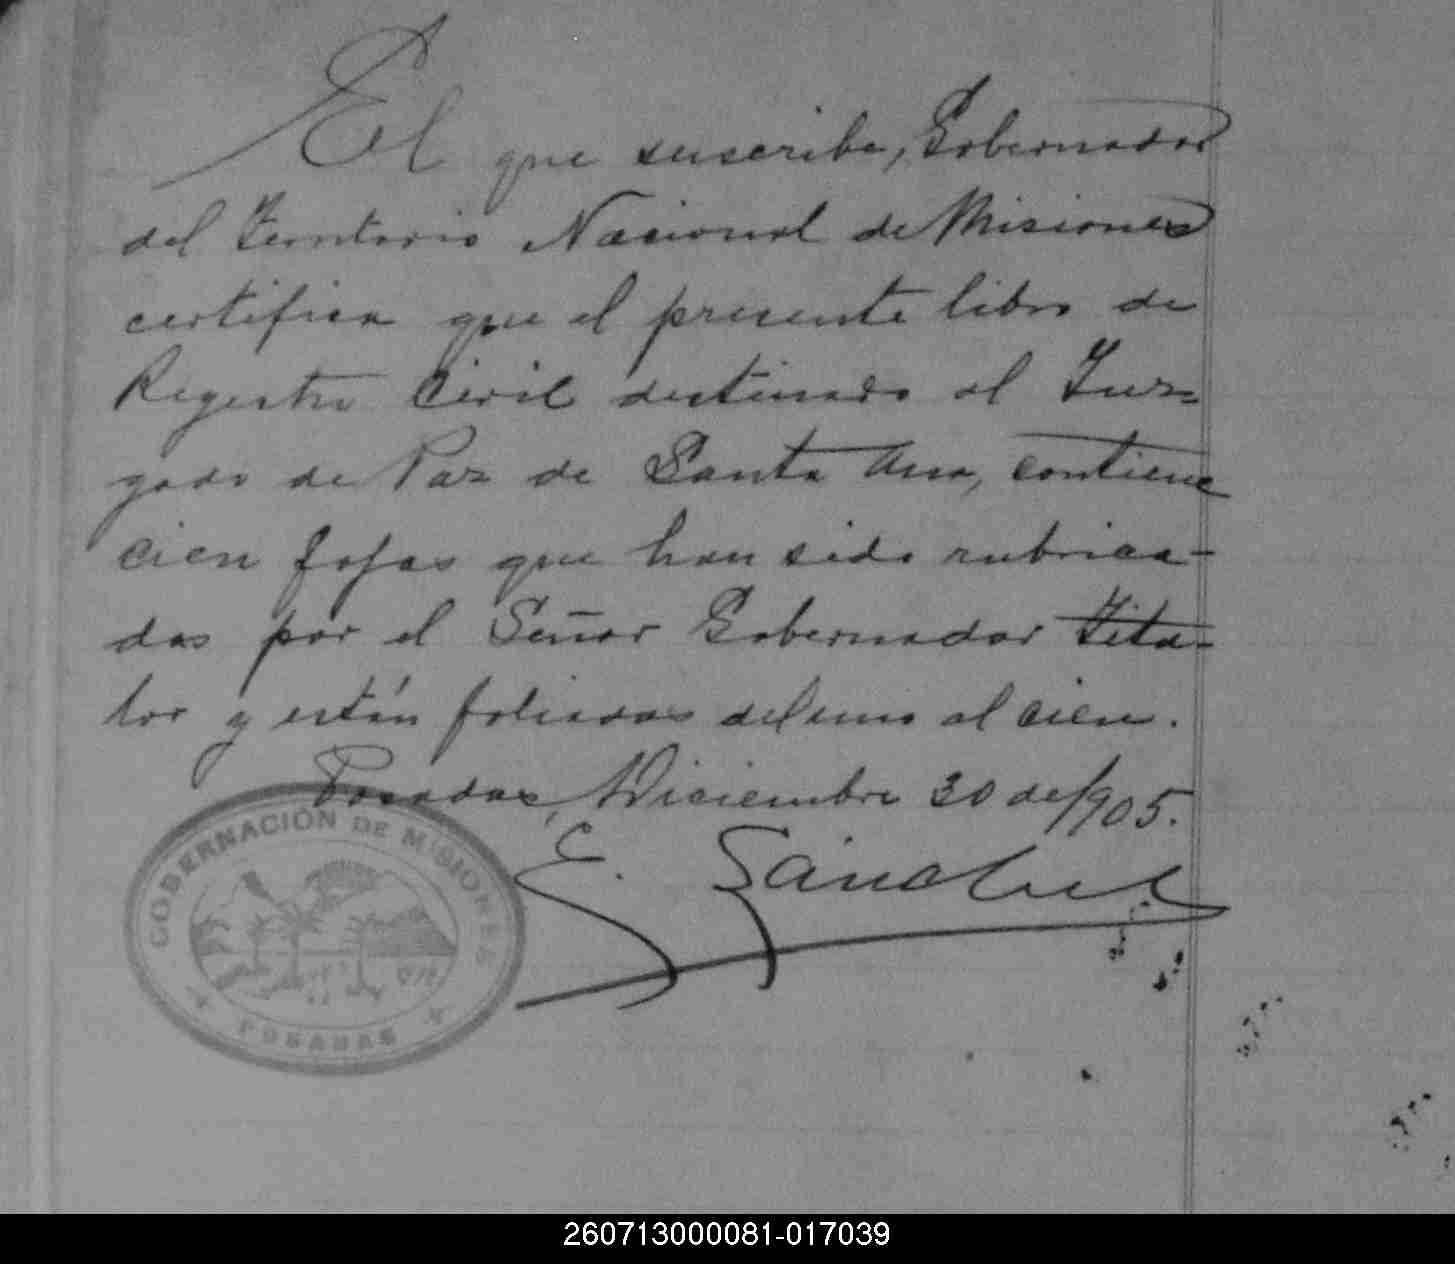 El que suscribe, Gobernador
del Territorio Nacional de Misiones
certifica que el presente libro de
Registro Civil destinado al Juz=
gado de Paz de Santa Ana, contiene
cien fojas que han sido rubrica-
das por el Señor Gobernador Titu-
lar y están foliadas del uno al cien.
Posadas, Diciembre 30 de 1905.
E. Sánchez
GOBERNACIÓN DE MISIONES
POSADAS
260713000081-017039